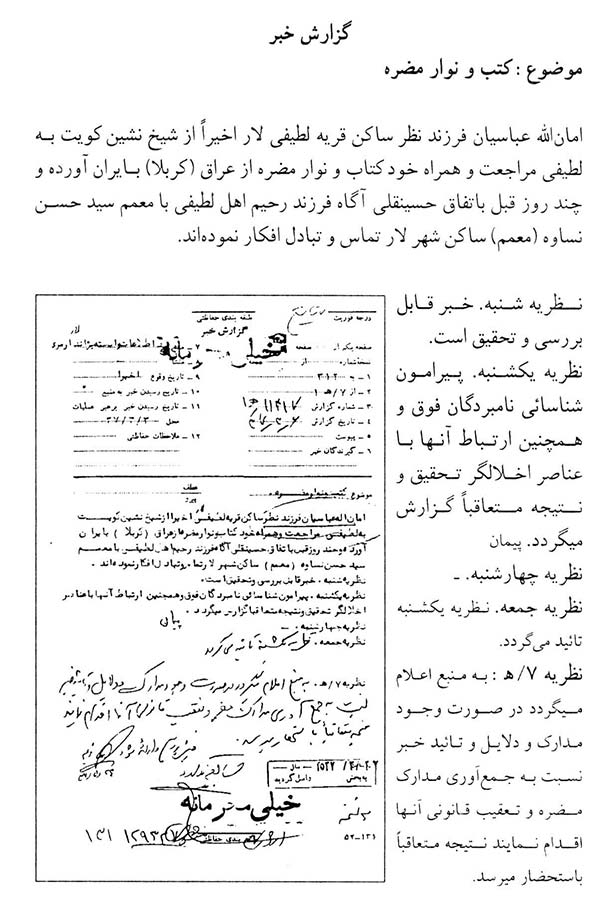 گزارش خبر
موضوع : کتب و نوار مضره
امان‌الله عباسیان فرزند نظر ساکن قریه لطیفی لار اخیراً از شیخ نشین کویت به
لطیفی مراجعت و همراه خود کتاب و نوار مضره از عراق (کربلا) بـایران آورده و
چند روز قبل باتفاق حسینقلی آگاه فرزند رحیم اهل لطیفی با معمم سید حسـن
نساوه (معمم) ساکن شهر لار تماس و تبادل افکار نموده‌اند.
نـظریه شـنبه. خـبر قـابل
بررسی و تحقیق است.
نظریه یکشنبه. پـیرامـون
شناسائی نامبردگان فوق و
همچنین ارتـباط آنـها بـا
عناصر اخـلالگر تـحقیق و
نـتیجه مـتعاقباً گـزارش
میگردد. پیمان
نظریه چهارشنبه. ـ
نظریه جمعه. نـظریه یکشنبه
تائید می‌گردد.
نظریه ۷/ ه‍ : بـه مـنبع اعـلام
میگردد در صـورت وجـود
مدارک و دلایل و تـائید خبر
نسبت به جمع‌آوری مدارک
مضره و تعقیب قانونی آنـها
اقدام نمایند نتیجه متعاقباً
باستحضار میرسد.
درجه فوریت
طبقه بندی حفاظتی
گزارش خبر
۱ ـ به ۳۱۲
۲ ـ از ۷/ ه‍ ۱
۳ ـ شماره گزارش
۴ ـ تاریخ گزارش
۵ ـ پیوست
۶ ـ گیرندگان خبر
لار
۹ ـ تاریخ وقوع اخیرا
۱۰ ـ تاریخ رسیدن خبر به منبع
۱۱ ـ تاریخ رسیدن خبر برهبر عملیات
محل ۳۷/۳/۳
۱۲ ـ ملاحظات حفاظتی
موضوع کتب و نوار مضره
عطف
پیرو
امان اله عباسیان فرزند نظر ساکن قریه لطیفی اخیرا از شیخ نشین کویت
به لطیفی مراجعت و همراه خود کتاب و نوار مضره از عراق (کربلا) بایران
آورده و چند روز قبل با تفاق حسینقلی آگاه فرزند رحیم اهل لطیفی با معمم
سید حسن نساوه (معمم) ساکن شهر لار تماس و تبادل افکار نموده اند.
نظریه شنبه. خبر قابل بررسی و تحقیق است.
نظریه یکشنبه. پیرامون شناسائی نامبردگان فوق و همچنین ارتباط آنها با عناصر
اخلالگر تحقیق و نتیجه متعاقبا گزارش میگردد. پیمان
نظریه چهارشنبه. ـ
نظریه جمعه. نظریه یکشنبه تائید می گردد
نظریه ۷/ ه‍ـ به منبع اعلام میگردد در صورت وجود مدارک و دلایل و تائید خبر
نسبت به جمع آوری مدارک مضره و تعقیب قانونی آنها اقدام نمایند
نتیجه متعاقباً باستحضار میرسد.
خیلی محرمانه
۵۲-۱۳۱
طبقه بندی حفاظتی